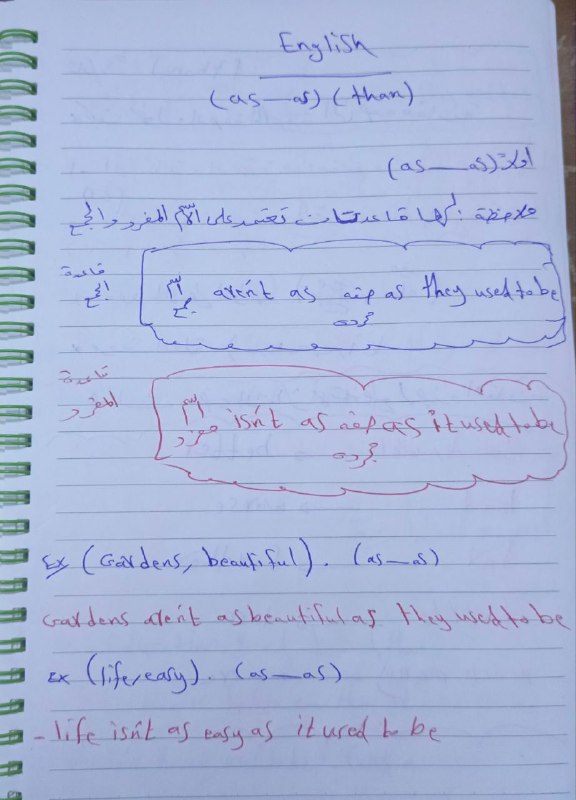 English
(as — as) (than)
اولاً: (as — as)
ملاحظة: لها قاعدتان تعتمد على الأسم المفرد والجمع
قاعدة الجمع
اسم جمع aren't as صفه مجرده as they used to be
قاعدة المفرد
اسم مفرد isn't as صفه مجرده as it used to be
Ex (Gardens, beautiful). (as — as)
Gardens aren't as beautiful as they used to be
Ex (life, easy). (as — as)
- life isn't as easy as it used to be